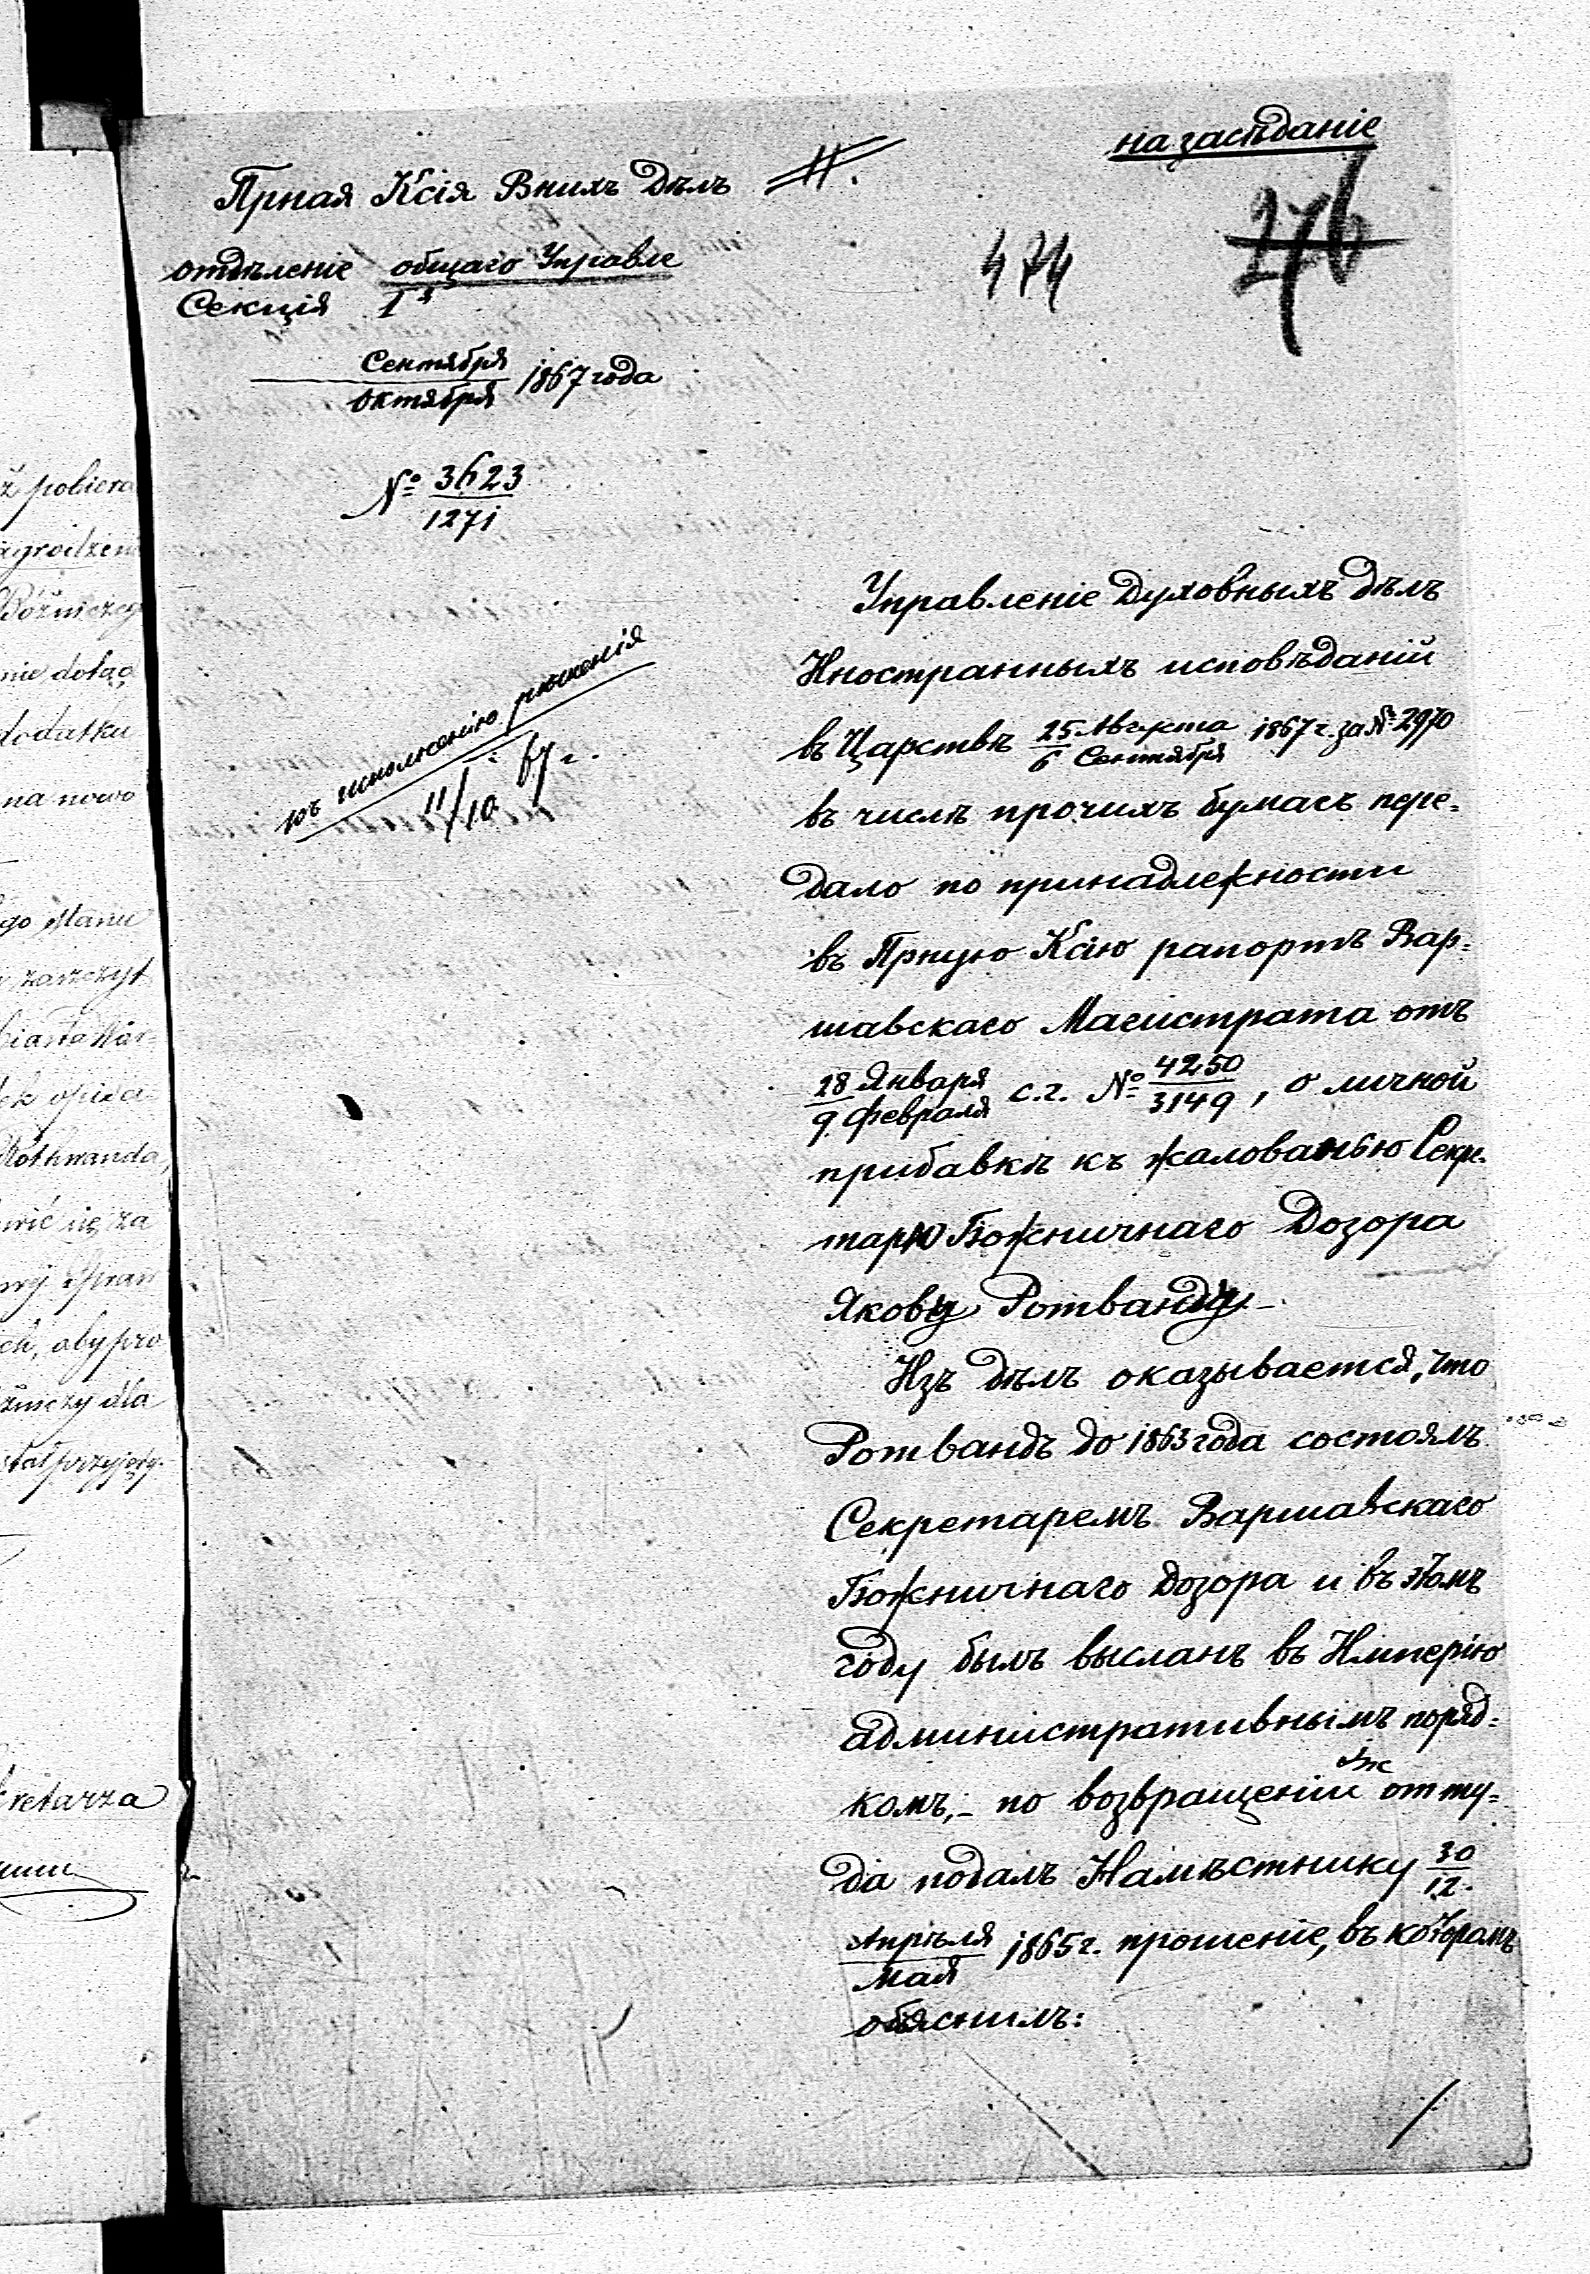 на засѣданіе
Прная Ксія Внихъ Дѣлъ
276
474
отдѣленіе общаго Управле
Секція I я
Сентября
Октября 1867 года
№ 3623
1271
къ исполненію рѣшенія
11/10 67 г.
Управленіе Духовныхъ дѣлъ
Иностранныхъ исповѣданій
въ Царствѣ 25 Августа / 6 Сентября 1867 г. за № 2970
въ числѣ прочихъ бумагъ пере=
дало по принадлежности
въ Прную Ксію рапортъ Вар=
шавскаго Магистрата отъ
28 Января / 9 Февраля с.г. № 4250 / 3149, о личной
прибавкѣ къ жалованью Секре=
тарю Божничнаго Дозора
Якову Ротванду.–
Изъ дѣлъ оказывается, что
Ротвандъ до 1863 года состоялъ
Секретаремъ Варшавскаго
Божничнаго Дозора и въ этомъ
году былъ высланъ въ Имперію
административнымъ поряд=
комъ,– по возвращеніи же отту=
да подалъ Намѣстнику 30 / 12.
Апрѣля / Мая 1865 г. прошеніе, въ которомъ
объяснилъ:
ż pobiera
nie dołącz
dodatku
na nowo
zaszczyt
Rothwanda,
się za
, aby pro
dla
przyjęty.
retarza